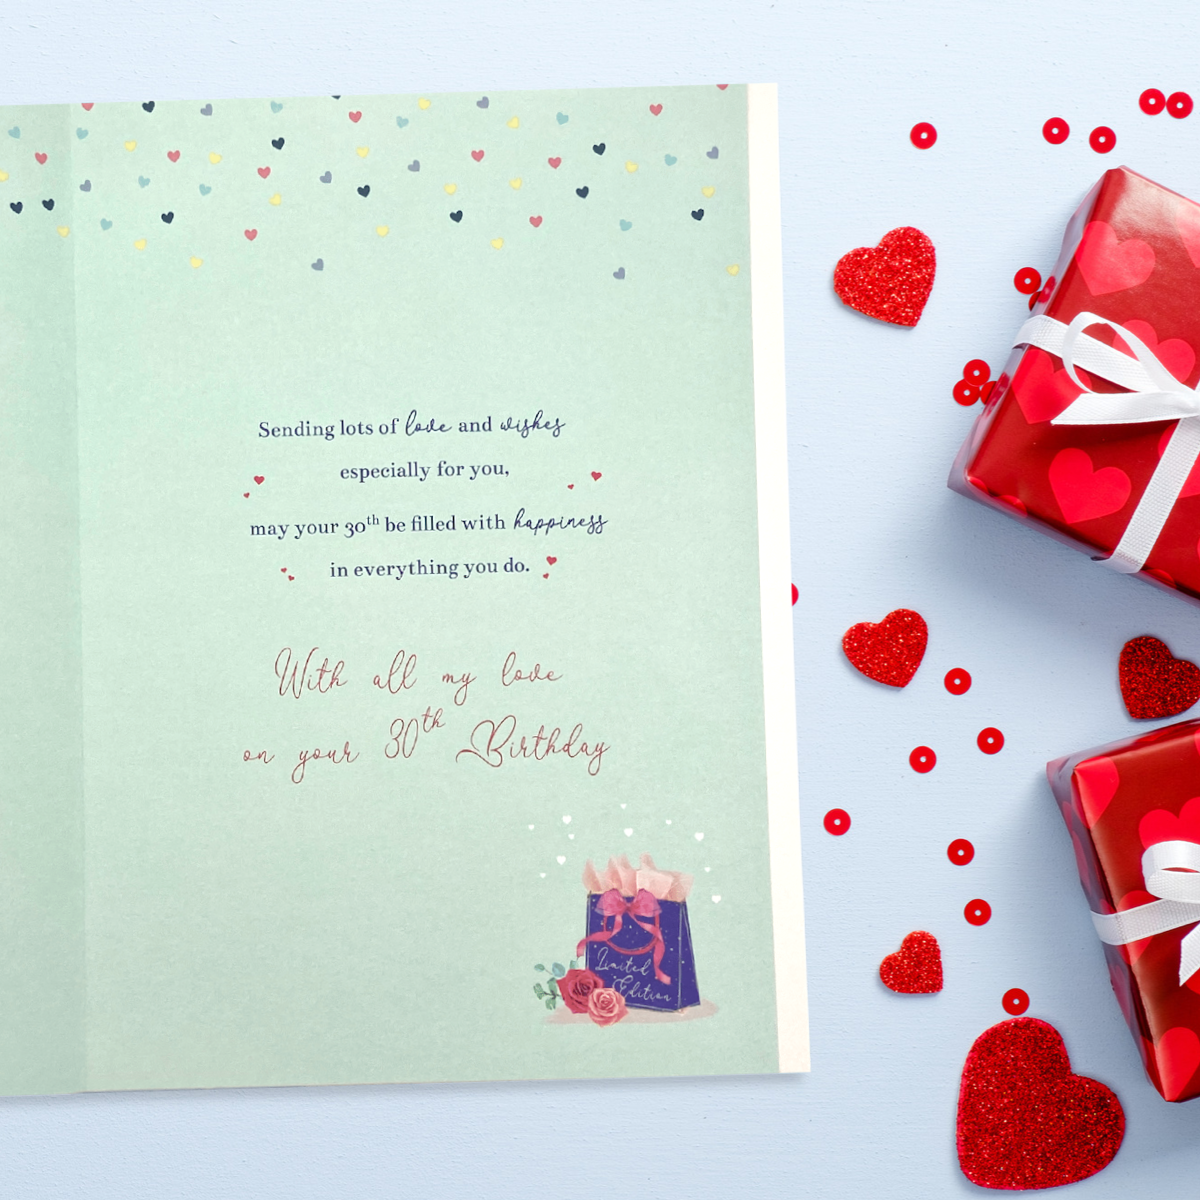 Sending lots of love and wishes
especially for you,
may your 30th be filled with happiness
in everything you do.
With all my love
on your 30th Birthday
Limited
Edition